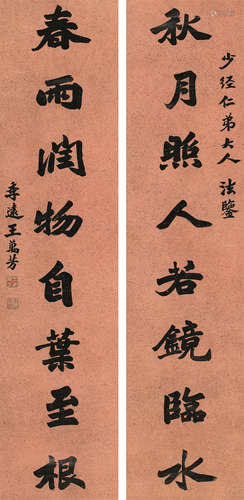 少经仁弟大人 法鑒
秋月照人若鏡臨水
春雨潤物自葉至根
季遠王萬芳